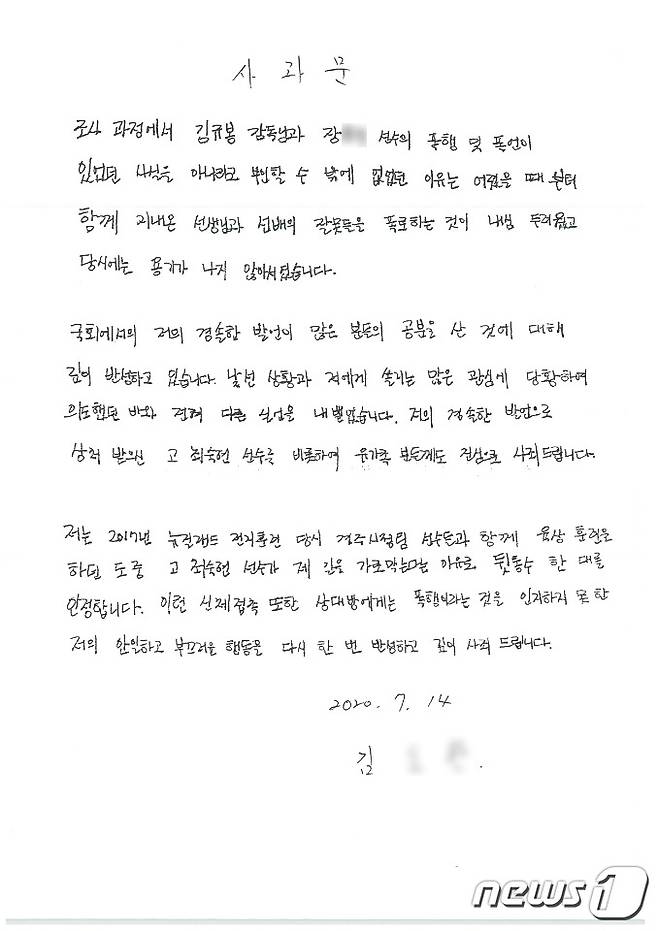 사 과 문
조사 과정에서 김규봉 감독님과 장 선수의 폭행 및 폭언이
있었던 사실을 아니라고 부인할 수 밖에 없었던 이유는 어렸을 때 부터
함께 지내온 선생님과 선배의 잘못들을 폭로하는 것이 내심 두려웠고
당시에는 용기가 나지 않아서였습니다.
국회에서의 저의 경솔한 발언이 많은 분들의 공분을 산 것에 대해
깊이 반성하고 있습니다. 낯선 상황과 저에게 쏠리는 많은 관심에 당황하여
의도했던 바와 전혀 다른 실언을 내뱉었습니다. 저의 경솔한 발언으로
상처 받으신 고 최숙현 선수를 비롯하여 유가족 분들께도 진심으로 사죄드립니다.
저는 2017년 뉴질랜드 전지훈련 당시 경주시청팀 선수들과 함께 육상 훈련을
하던 도중 고 최숙현 선수가 제 길을 가로막는다는 이유로 뒷통수 한 대를
인정합니다. 이런 신체접촉 또한 상대방에게는 폭행이라는 것을 인지하지 못한
저의 안일하고 부끄러운 행동을 다시 한 번 반성하고 깊이 사죄 드립니다.
2020. 7. 14
김
news1